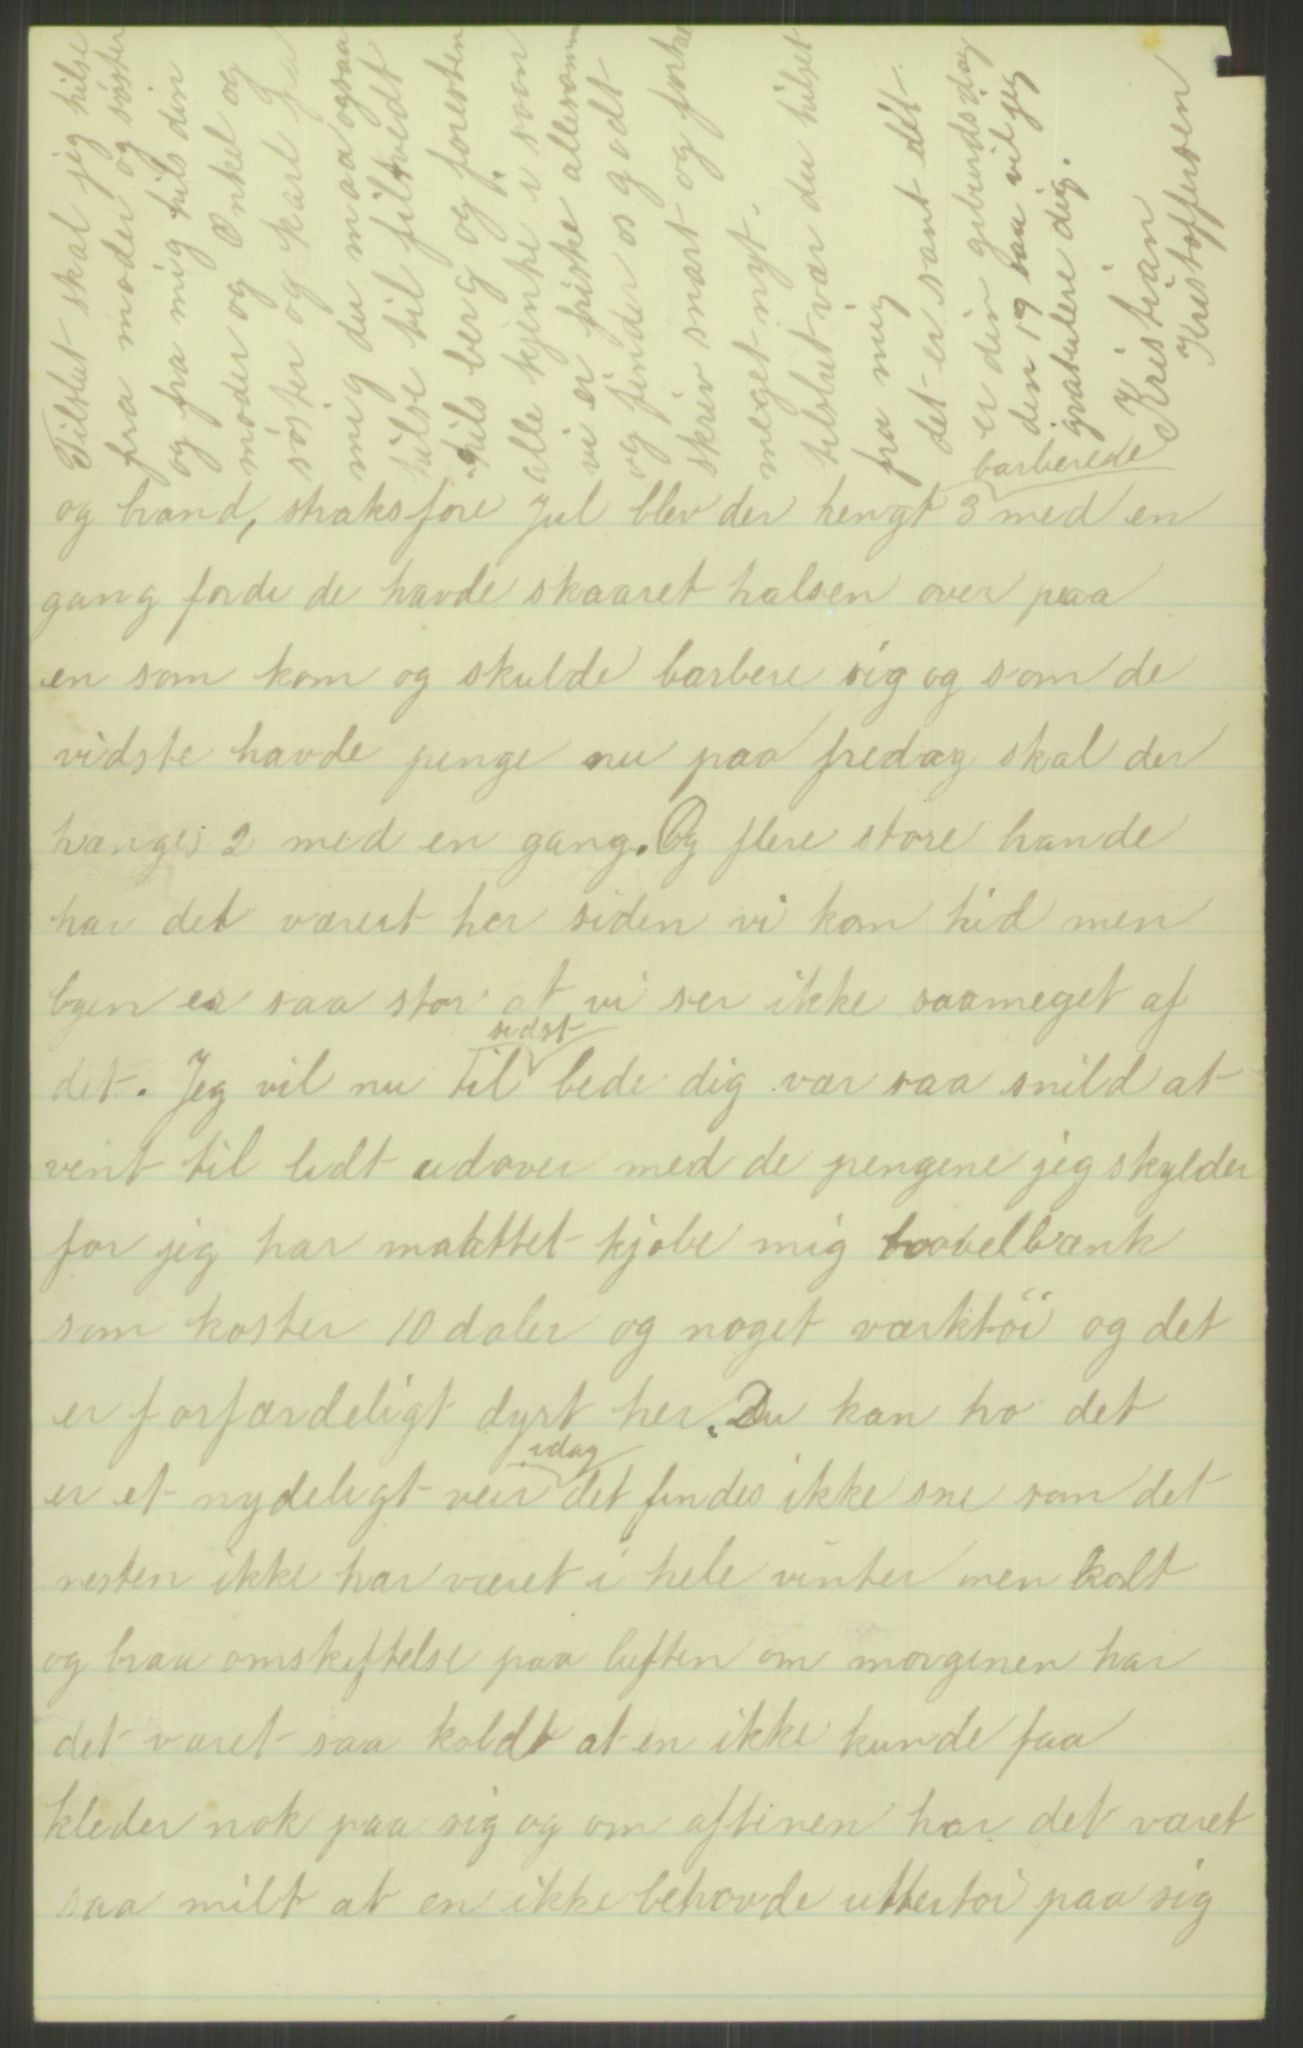 og brand, straks före Jul blev der hengt 3 barberede med en
gang fordi de havde skaaret halsen over paa
en som kom og skulde barbere sig og som de
vidste havde penge nu paa fredag skal der
hænges 2 med en gang. Og flere store brande
har det værert her siden vi kom hid men
byen er saa stor at vi ser ikke saameget af
det. Jeg vil nu til sidst bede dig vær saa snild at
vent til lidt udover med de pengene jeg skylder
for jeg har maattet kjøbe mig høvelbænk
som koster 10 daler og noget værktöi og det
er forfærdeligt dyrt her. Du kan tro det
er et nydeligt veir idag det findes ikke sne som det
nesten ikke har været i hele vinter men kolt
og braa omskiftelse paa luften om morgenen har
det været saa koldt at en ikke kunde faa
kleder nok paa sig og om aftenen har det været
saa milt at en ikke behøvde uttertöi paa sig
Tilslut skal jeg hilse
fra moder og söster
og fra mig hils din
moder og Onkel og
söster og Karl fra
mig du maa ogsaa
hilse til filtvedt
hils berg og foresten
alle kjente v. som
vi er friske allesamm
og finder os godt
skrev snart og fortæl
meget nyt.
tilslut vær du hilset
fra mig
det er sant det
er din geburdsdag
den 19 saa vil jeg
gratulere dig.
Kristian
Kristoffersen